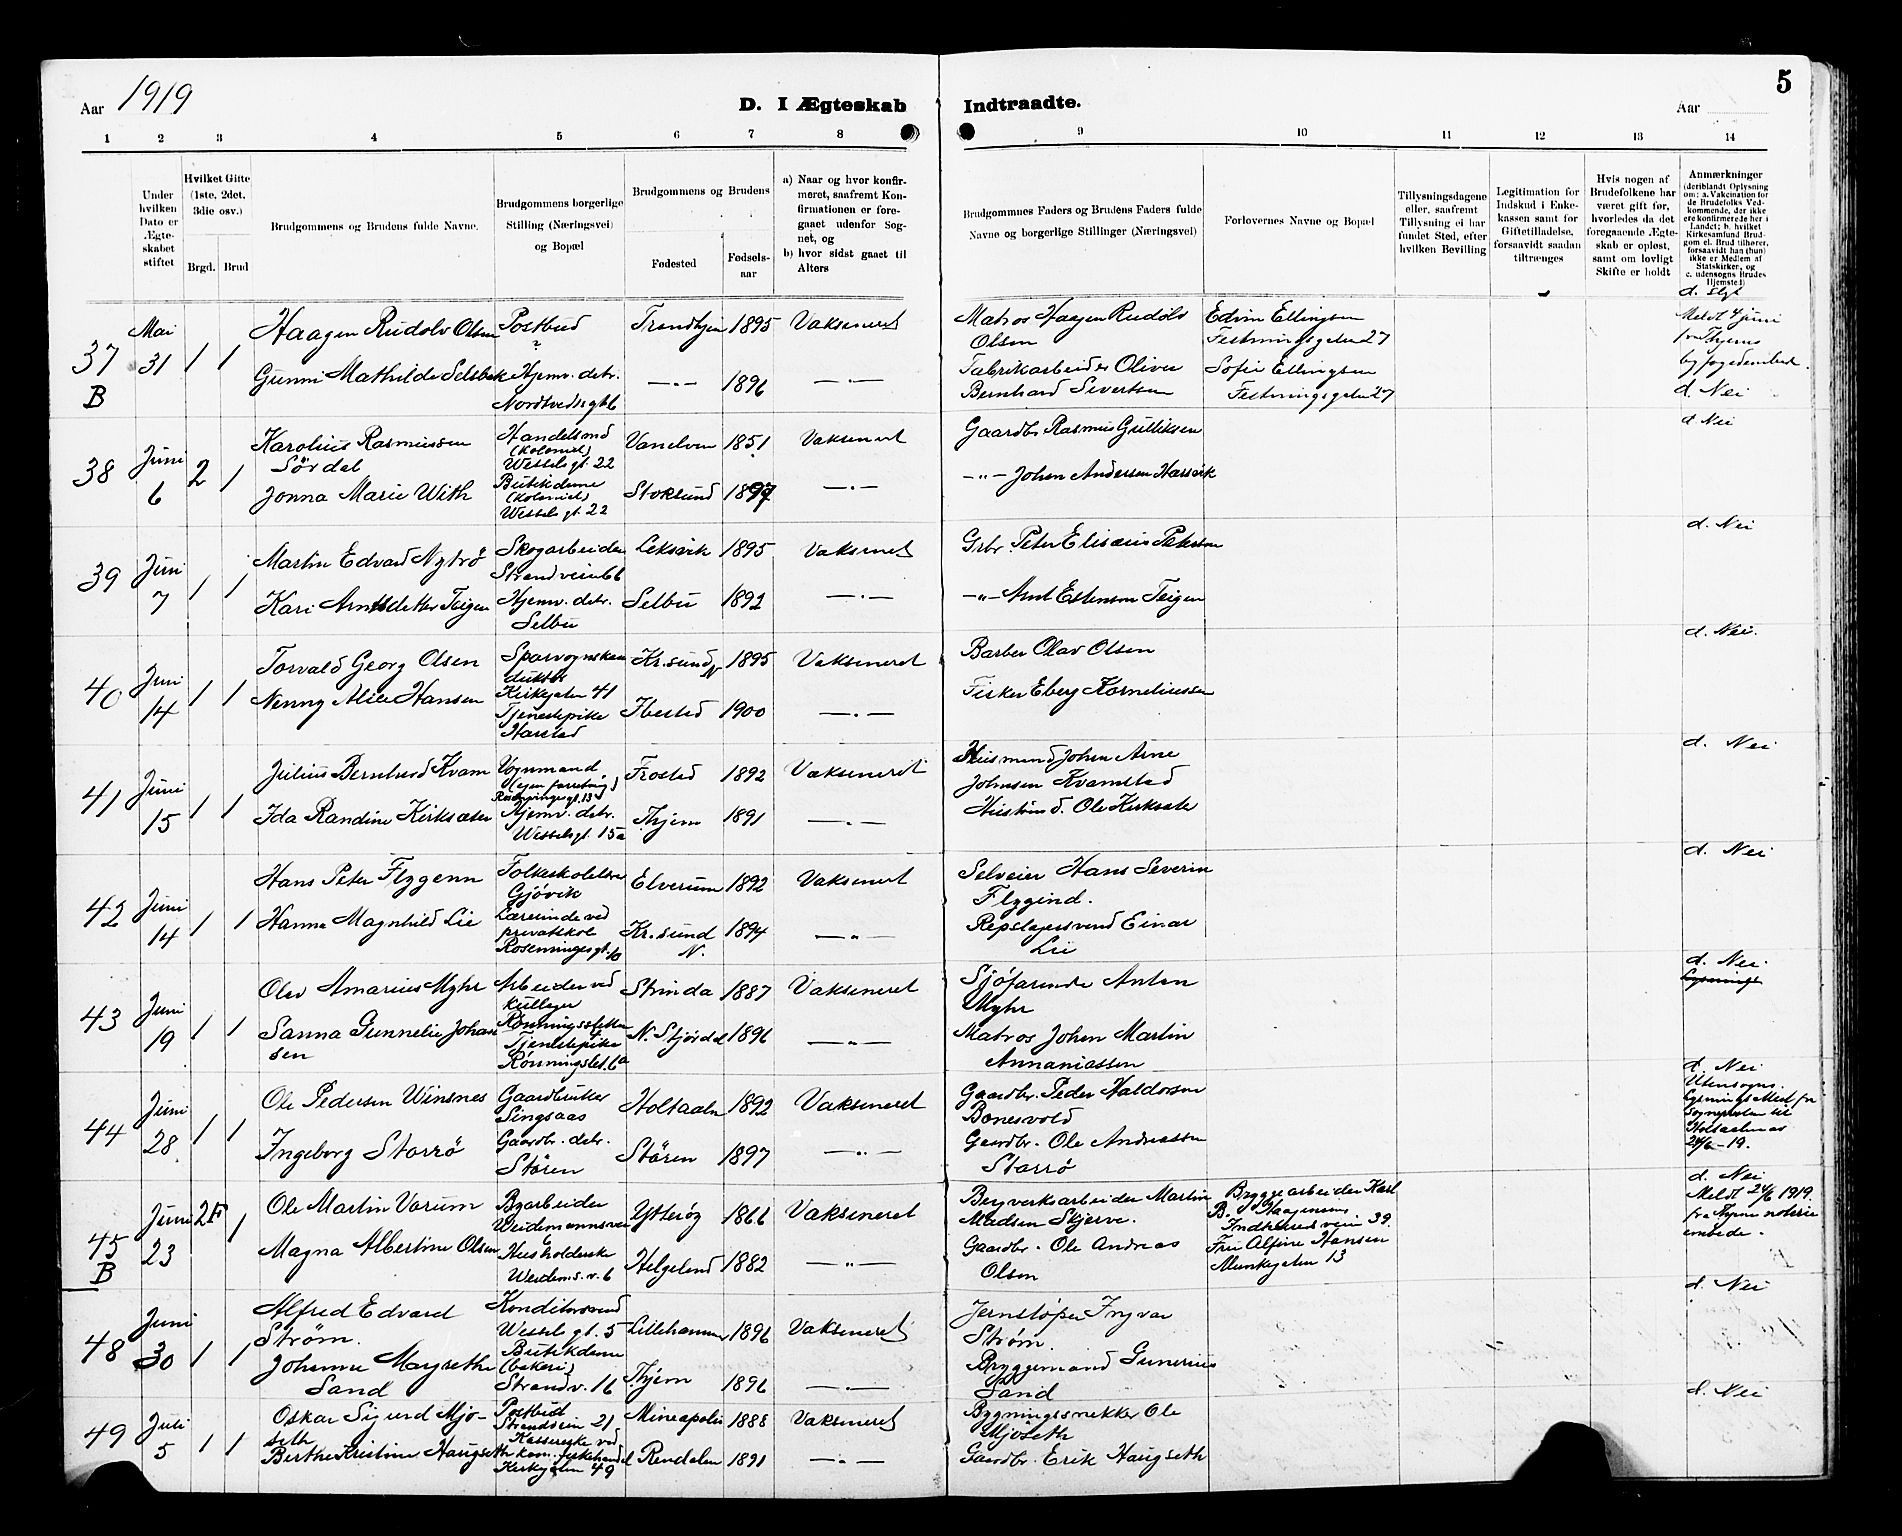 5
Aar 1919
D. I Ægteskab Indtraadte.
Aar
1 2 3 4 5 6 7 8 9 10 11 12 13 14
Under hvilken Dato er Ægteskabet stiftet
Hvilket Gifte (1ste, 2det, 3die osv.)
Brgd. Brud
Brudgommens og Brudens fulde Navne.
Brudgommens borgerlige Stilling (Næringsvei) og Bopæl
Brudgommens og Brudens
Fødested
Fødselsaar
a) Naar og hvor konfirmeret, saafremt Konfirmationen er foregaaet udenfor Sognet, og
b) hvor sidst gaaet til Alters
Brudgommnes Faders og Brudens Faders fulde Navne og borgerlige Stillinger (Næringsvei)
Forlovernes Navne og Bopæl
Tillysningsdagene eller, saafremt Tillysning ei har fundet Sted, efter hvilken Bevilling
Legitimation for Indskud i Enkekassen samt for Giftetilladelse, forsaavidt saadan tiltrænges
Hvis nogen af Brudefolkene har været gift før, hvorledes da det foregaaende Ægteskab er opløst, samt om lovligt Skifte er holdt
Anmærkninger (deriblandt Oplysning om: a. Vakcination for de Brudefolks Vedkommende, der ikke ere konfirmerede her i Landet; b. hvilket Kirkesamfund Brudgom el. Brud tilhører, forsaavidt han (hun) ikke er Medlem af Statskirken, og c. udensogns Brudes Hjemsted)
37 B Mai 31 1 1
Haagen Rudolv Olsen Postbud ? Trondhjem 1895 Vaksineret
Matros Haagen Rudolv Olsen
Edvin Ellingsen Festningsgaten 27
Gunni Mathilde Selsbak Hjemv. datr. Nordtvedts gt 6 —.— 1896 —.—
Fabrikarbeider Oliver Bernhard Sivertsen
Sofie Ellingsen Festningsgaten 27
d. Slgt
Meldt 4 juni fra Thjems byfogedembed.
d. Nei
38 Juni 6 2 1
Karolius Rasmussen Sördal Handelsmd (Kolonial) Wessels gt. 22 Vanelven 1851 Vaksineret
Gaardbr Rasmus Gulliksen
d. Nei
Jonna Marie With Butikdame (Kolonial) Wessels gt. 22 Stoksund 1897 —.—
—"— Johan Andersen Harsvik
39 Juni 7 1 1
Martin Edvard Nytrö Skogarbeider Strandveien 66 Leksvik 1895 Vaksineret
Grbr. Peter Elisæus Petersen
d. Nei
Kari Arntsdatter Teigen Hjemv. datr. Selbu Selbu 1892 —.—
—"— Arnt Estensen Teigen
40 Juni 14 1 1
Torvald Georg Olsen Sporvognskonduktör Kirkegaten 41 Kr.sund N 1895 Vaksineret
Barber Olav Olsen
d. Nei.
Nenny Alice Hansen Tjenestepike Harstad Ibestad 1900 —.—
Fisker Eberg Korneliussen
41 Juni 15 1 1
Julius Bernhard Kvam Vognmand (egen forretning) Frosted 1892 Vaksineret
Husmand Johan Arne Johnsen Kvamstad
d. Nei
Ida Randine Kirksæter Hjemv. datr. Wesselsgt. 15a Thjem 1891 —.—
Husmd. Ole Kirksæte
42 Juni 14 1 1
Hans Peter Flygenn Folkeskolelærer Gjövik Elverum 1892 Vaksineret
Selveier Hans Severin Flygind.
d. Nei
Hanna Magnhild Lie Lærerinde ved privatskole Rosenningsgt. 10 Kr.sund N. 1894 —"—
Repslagersvend Einar Lie
43 Juni 19 1 1
Olav Amarius Myhr Arbeider ved kullager Rönningsletten Strinda 1887 Vaksineret
Sjöfarende Anton Myhr
d. Nei.
Sanna Gunnelie Johansen Tjenestepike Rönningslet. 6a N. Stjördal 1896 —"—
Matros Johan Martin Annaniassen
44 Juni 28 1 1
Ole Pedersen Winsnes Gaardbruker Singsaas Holtaalen 1892 Vaksineret
Gaardbr. Peder Haldorsen Bonesvold
d. Nei
Utensogns. Lysnings Attest fra Sogneprsten til Holtaalen as 24/6 - 19.
Ingeborg Storrö Gaardbr. datr. Stören Stören 1897 —"—
Gaardbr. Ole Andreassen Storrö
45 B Juni 23 2F 1
Ole Martin Varum Byarbeider Weidemannsvei 6 Ytteröy 1866 Vaksineret
Bergverksarbeider Martin Madsen Skjerve.
Byggearbeider Karl B. Haagensen Indherredsveien 39.
d. Nei
Meldt 24/6 1919 fra Thjems notarie embede.
Magna Albertine Olsen Husholderske Weidems.v. 6 Helgeland 1882 —"—
Gaardbr. Ole Andreas Olsen
Fru Alfine Hansen Munkegaten 13
48 Juni 30 1 1
Alfred Edvard Ström. Konditorsvend Wessels gt. 5 Lillehammer 1896 Vaksineret
Jernstöper Ingvar Ström.
d. Nei
Johanna Margrethe Sand Butikdame (bakeri) Strandv. 16 Thjem 1896 —.—
Bryggemand Gunerius Sand
49 Juli 5 1 1
Oskar Sigurd Mjöseth Postbud Strandveien 21 Mineapolis 1888 Vaksineret
Bygningssnekker Ole Mjöseth
d. Nei
Berthe Kristine Haugseth Kassererske ved kom. fiskehandel Kirkegaten 49 Rendalen 1891 —"—
Gaardbr. Erik Haugseth